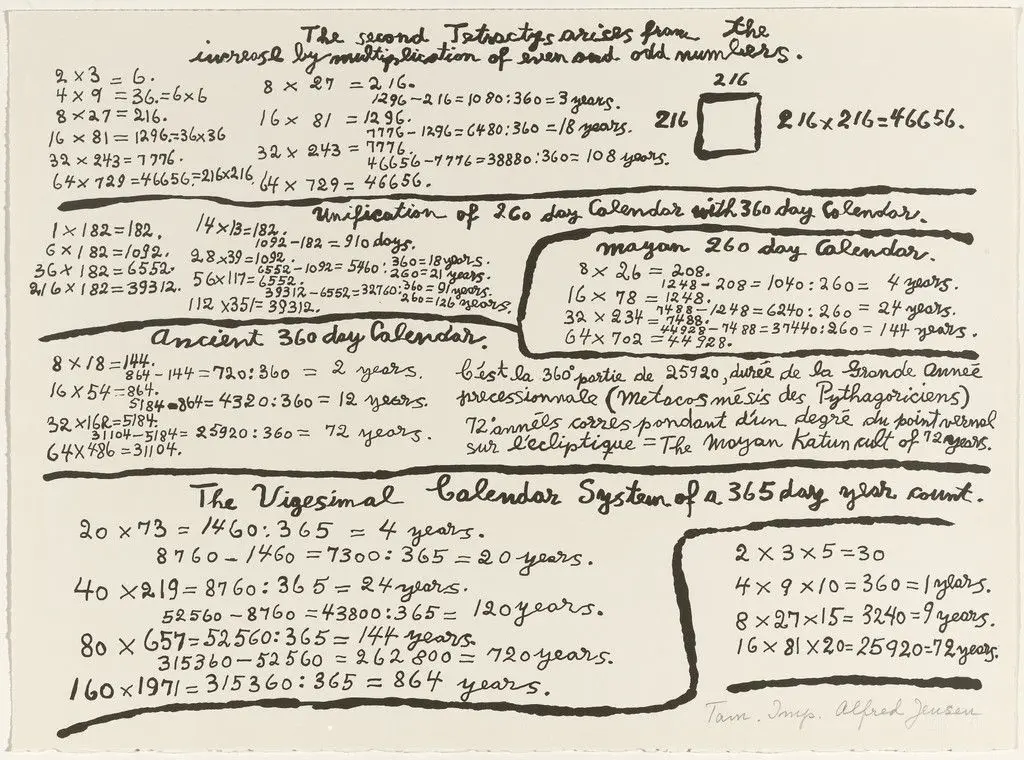 The second Tetractys arises from the
increase by multiplication of even and odd numbers.
2 × 3 = 6.
4 × 9 = 36.=6×6
8×27=216.
16 × 81 = 1296.=36×36
32 × 243= 7776.
64× 729=46656.=216×216
8 × 27 = 216.
1296-216=1080:360=3 years.
16 × 81 = 1296.
7776-1296=6480:360=18 years.
32× 243 = 7776.
46656-7776=38880:360=108 years.
64 × 729 = 46656.
216
216
216×216=46656.
Unification of 260 day Calendar with 360 day Calendar.
1 × 182=182.
6 × 182=1092.
36× 182=6552.
216 × 182=39312.
14×13=182.
1092-182=910 days.
28×39=1092.
6552-1092=5460:360=18years.
260=21 years.
56×117=6552.
39312-6552=32760:360=91 years.
260=126 years.
112 ×351=39312.
Mayan 260 day Calendar.
8 × 26 = 208.
1248-208=1040:260= 4 years.
16 × 78 = 1248.
7488-1248=6240:260 = 24 years.
32 × 234 = 7488.
44928-7488=37440:260= 144 years.
64× 702 =44928.
Ancient 360 day Calendar.
8 × 18=144.
864-144=720:360 = 2 years.
16 × 54=864.
5184-864=4320:360= 12 years.
32×162=5184.
31104-5184=25920:360= 72 years.
64×486=31104.
C'est la 360° partie de 25920, durée de la Grande Année
precessionnale (Metacosmésis des Pythagoriciens)
72 années correspondant d'un degré du point vernal
sur l'écliptique = The Mayan Katun cult of 72 years.
The Vigesimal Calendar System of a 365 day year count.
20 ×73 = 1460:365 = 4 years.
8760-1460=7300:365=20 years.
40 ×219=8760:365= 24 years.
52560-8760=43800:365= 120 years.
80 × 657=52560:365= 144 years.
315360-52560=262800=720years.
160×1971=315360:365 = 864 years.
2 × 3 × 5=30
4 × 9 ×10=360=1 years.
8 ×27×15= 3240=9 years.
16 × 81 ×20=25920=72 years.
Tam. Imp. Alfred Jensen